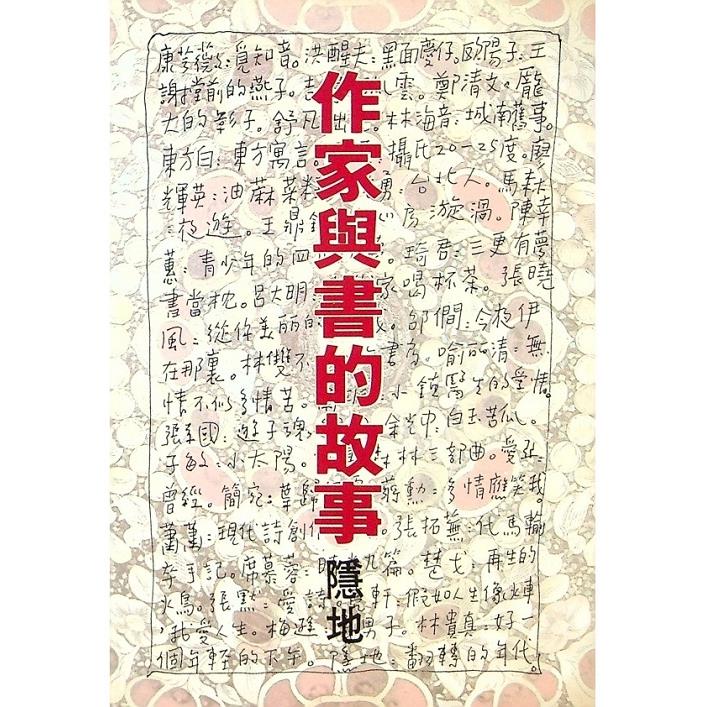 作家與書的故事
隱地
康芸薇:覓知音。洪醒夫:黑面慶仔。歐陽子:王
謝堂前的燕子。 雲。鄭清文:龐
大的影子。舒凡:出 。林海音:城南舊事。
東方白:東方寓言。 攝氏20-25度。廖
輝英:油蔴菜籽 勇:台北人。馬
夜遊。王鼎鈞 心房漩渦。陳幸
蕙:青少年的四 琦君:三更有夢
書當枕。呂大明: 家喝杯茶。張曉
風:從你美麗的 。邵僩:今夜伊
在那裏。林雙不 書房。喻麗清:無
情不似多情苦。 :小鎮醫生的愛情。
張系國:遊子魂 余光中:白玉苦瓜。
子敏:小太陽。 林三部曲。愛亞:
曾經。簡宛:葉歸 蔣勳:多情應笑我。
蕭蕭:現代詩創作 。張拓蕪:代馬輸
卒手記。席慕蓉:時光九篇。楚戈:再生的
火鳥。張默:愛詩。 軒:假如人生像火車
,我愛人生。梅遜: 男子。林貴真:好一
個年輕的下午。隱地:翻轉的年代。